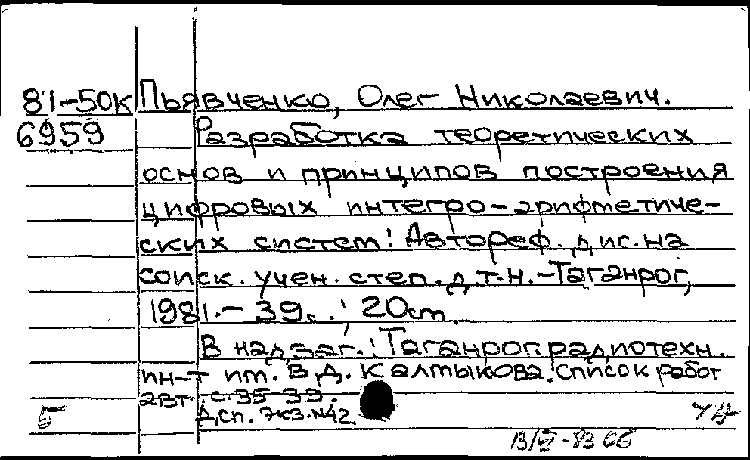 81-50К Пьявченко, Олег Николаевич.
6959 Разработка теоретических
основ и принципов построения
цифровых интегро-арифметиче-
ских систем: Автореф. дис. на
соиск. учен. степ. д.т.н. - Таганрог,
1981. - 39 с.; 20 cm.
В надзаг.: Таганрог. радиотехн.
ин-т им. В.Д. Калмыкова. Список работ
авт. с. 35-39.
Б Д.сп. Экз. №42